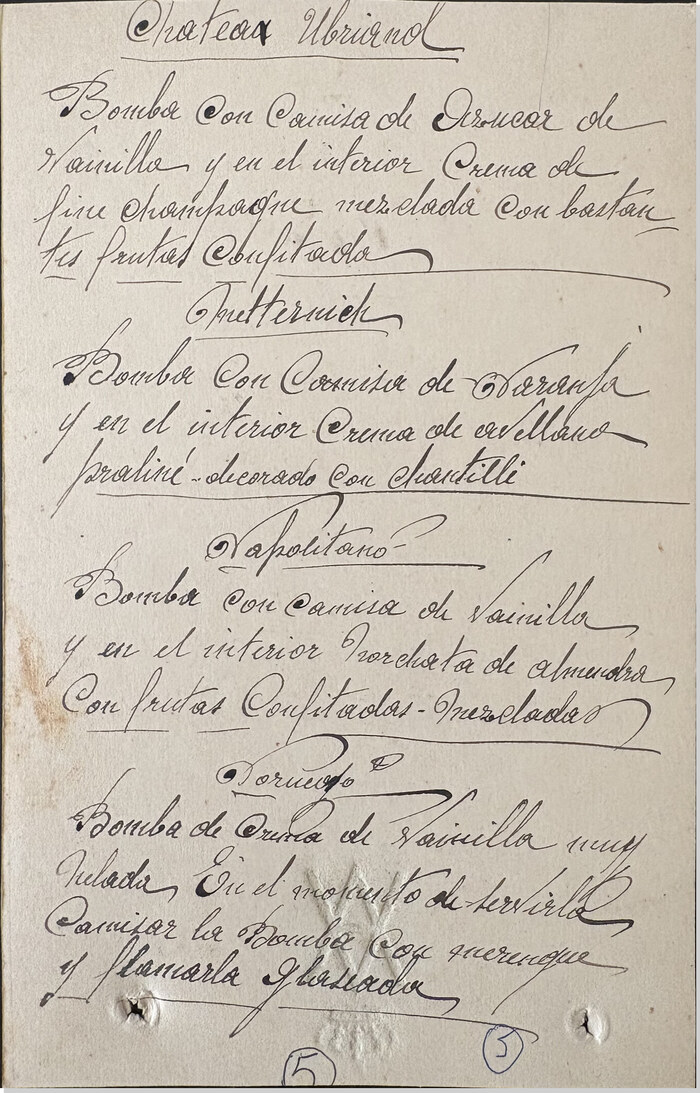 Chateax Ubriand
Bomba con Camisa de Azucar de
Vainilla y en el interior Crema de
fine champagne mezclada con bastan
tes frutas Confitada
Metternich
Bomba con Camisa de Naranja
y en el interior Crema de avellana
praliné - decorado con chantilli
Napolitano
Bomba con camisa de Vainilla
y en el interior horchata de almendra
Con frutas Confitadas - Mezcladas
Bomba de Crema de Vainilla muy
helada En el momento de servirla
Camisar la Bomba con merengue
y flamarla glaseada
5
5